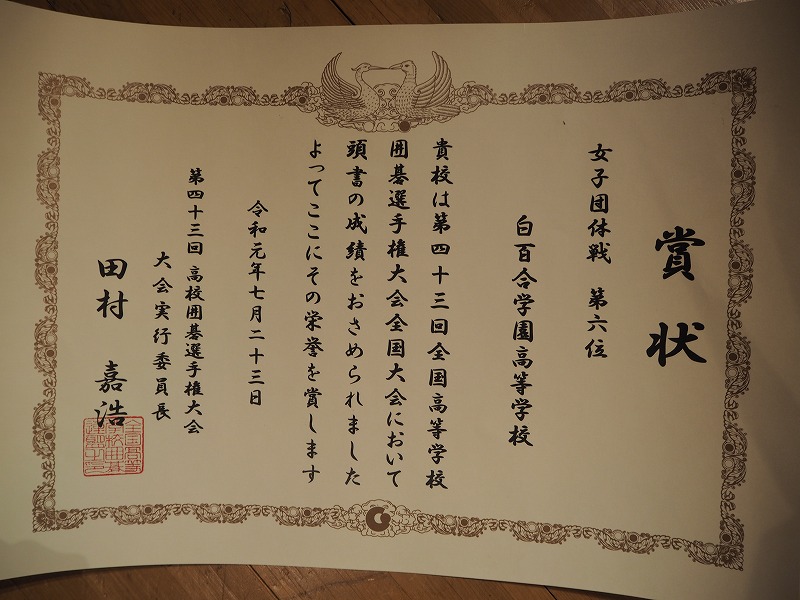 賞状
女子団体戦 第六位
白百合学園高等学校
貴校は第四十三回全国高等学校
囲碁選手権大会全国大会において
頭書の成績をおさめられました
よってここにその栄誉を賞します
令和元年七月二十三日
第四十三回 高校囲碁選手権大会
大会実行委員長
田村 嘉浩